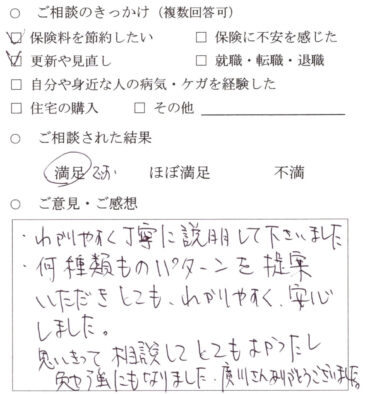 ○ ご相談のきっかけ（複数回答可）
☑ 保険料を節約したい　□ 保険に不安を感じた
☑ 更新や見直し　□ 就職・転職・退職
□ 自分や身近な人の病気・ケガを経験した
□ 住宅の購入　□ その他
○ ご相談された結果
満足 です　ほぼ満足　不満
○ ご意見・ご感想
・わかりやすく丁寧に説明して下さいました
・何種類ものパターンを提案
いただきとても、わかりやすく、安心
しました。
思いきって相談してとてもよかったし
勉強にもなりました。廣川さんありがとうございました。